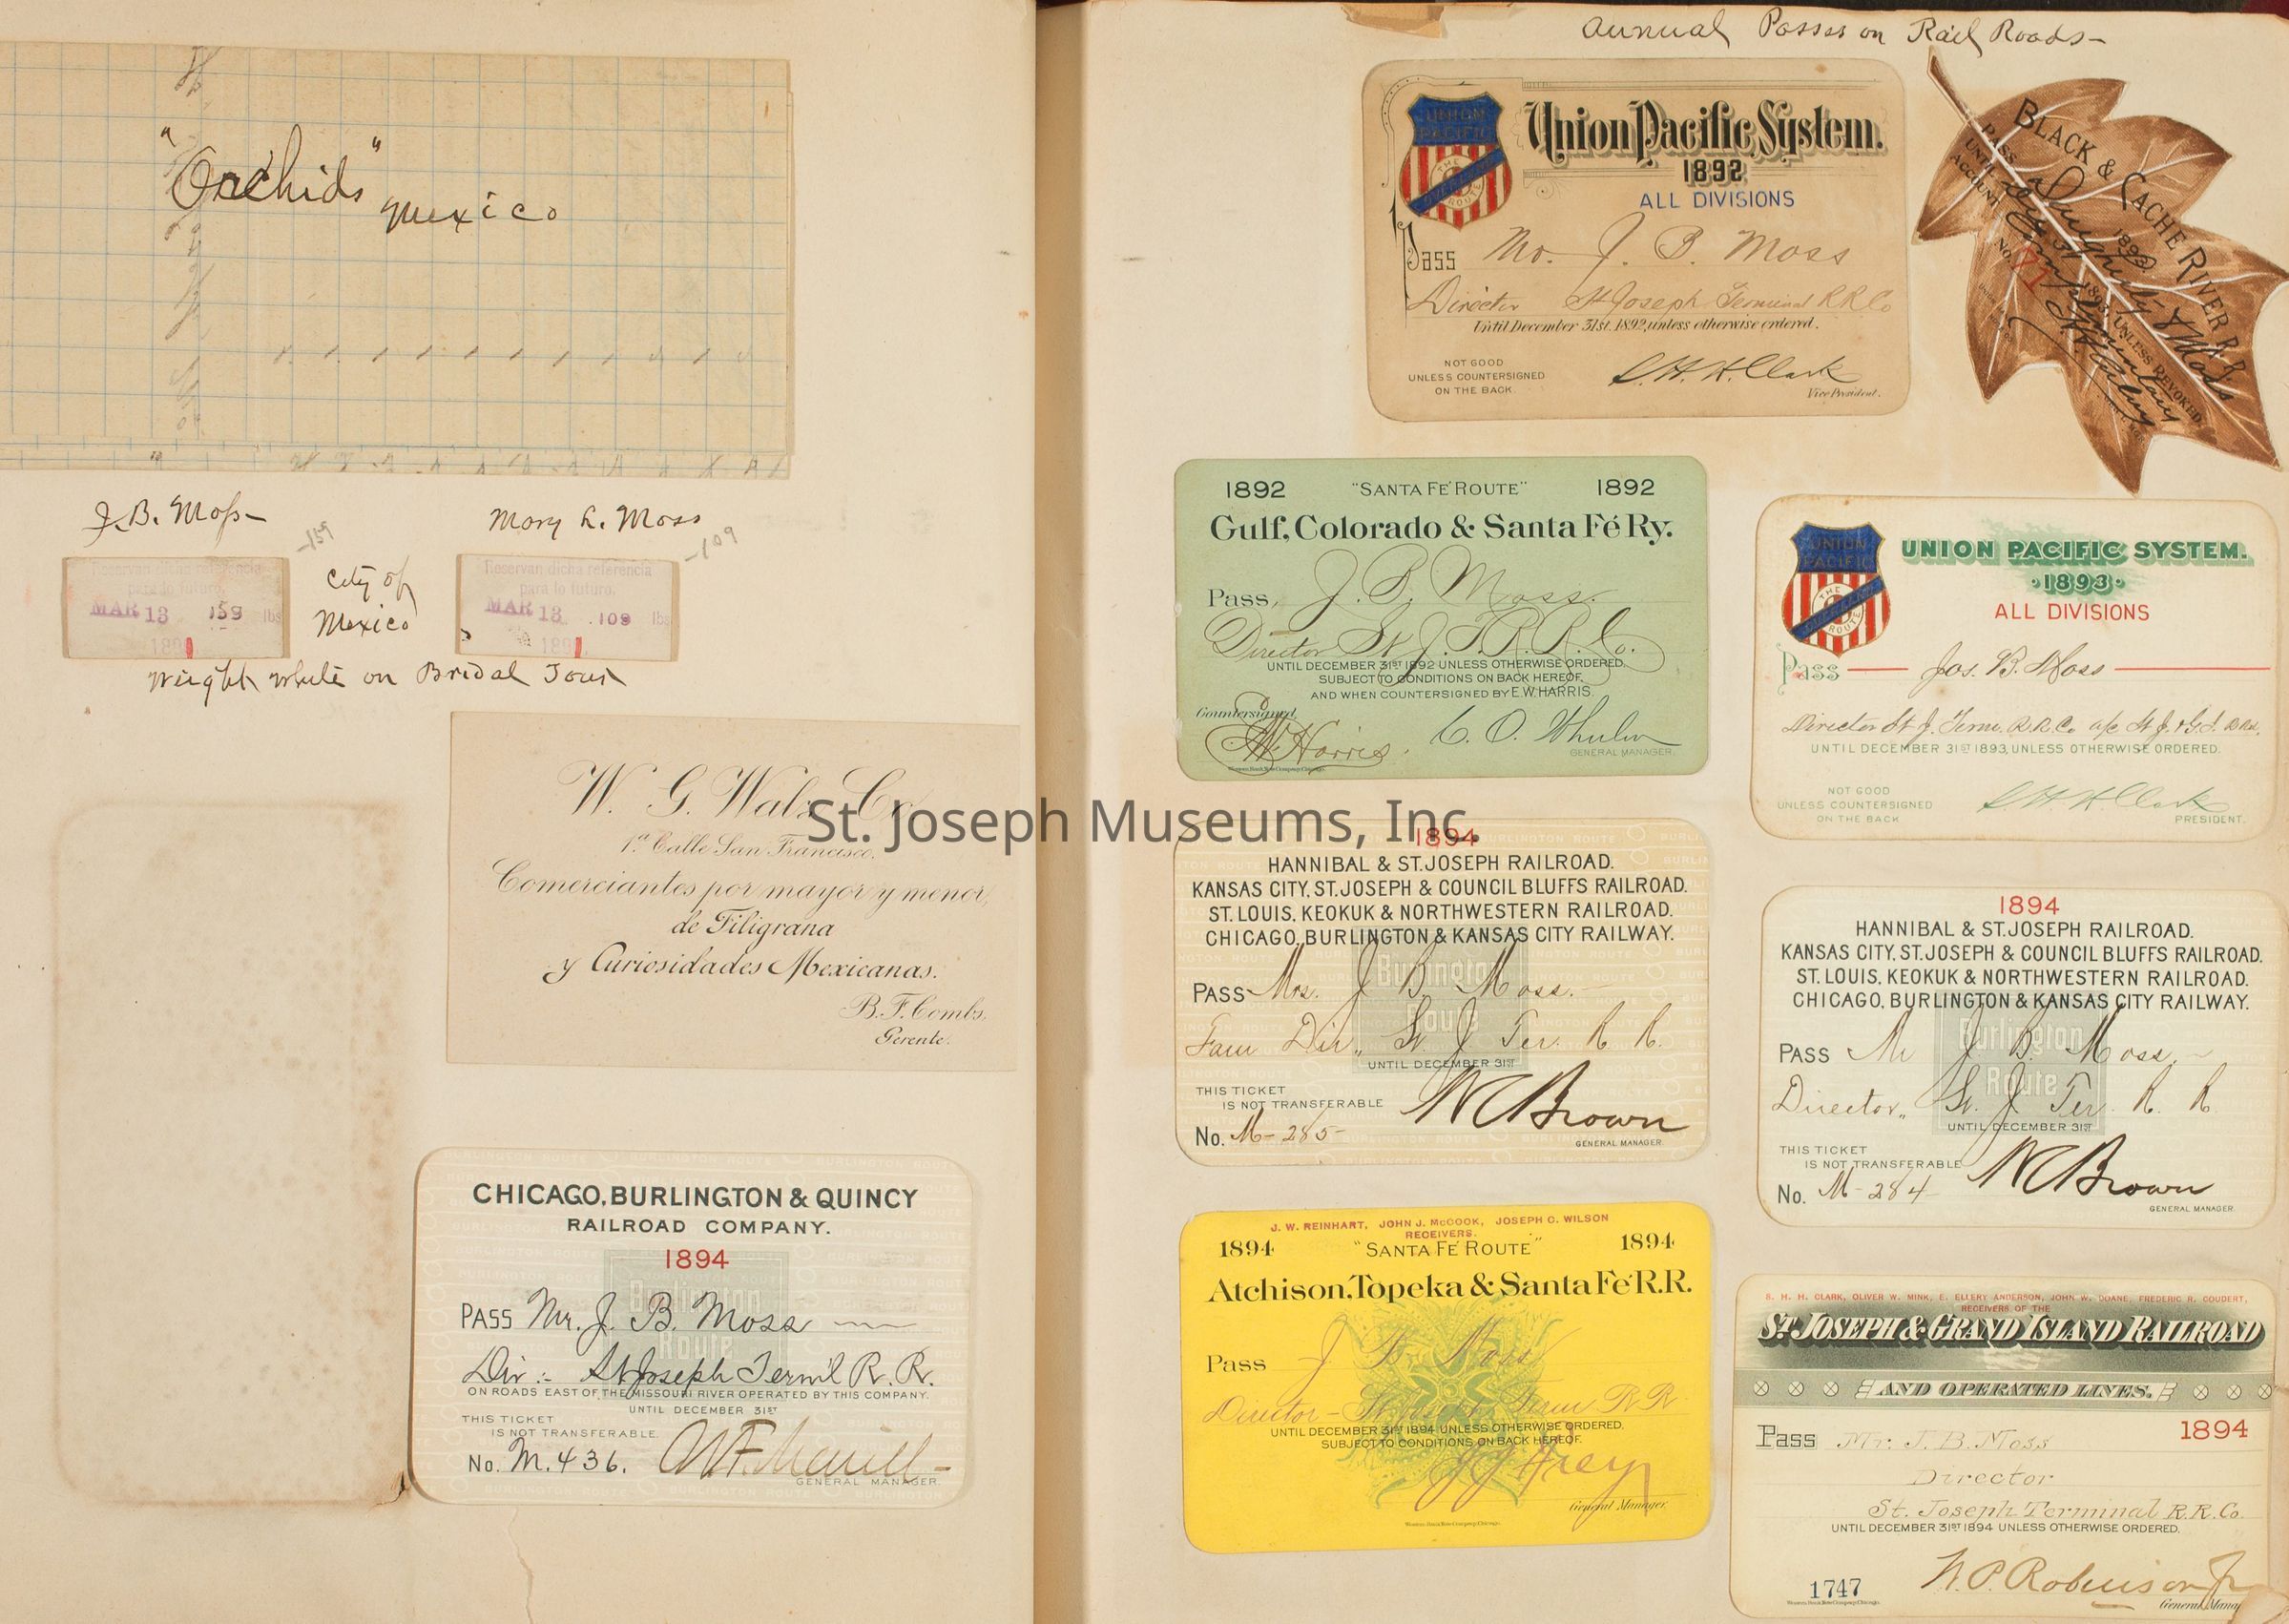 "Orchids"
Mexico
J. B. Moss
Mary L. Moss
-159
-109
Reservan dicha referencia
para lo futuro.
MAR 13 159 lbs
189
City of
Mexico
Reservan dicha referencia
para lo futuro.
MAR 13 .109 lbs
189
Weight while on Bridal Tour
W. G. Walz Co.
1ª Calle San Francisco.
Comerciantes por mayor y menor,
de Filigrana
y Curiosidades Mexicanas.
B. F. Combs,
Gerente.
CHICAGO, BURLINGTON & QUINCY
RAILROAD COMPANY.
1894
Burlington
Route
PASS Mr. J. B. Moss
Dir:- St Joseph Term'l R. R.
ON ROADS EAST OF THE MISSOURI RIVER OPERATED BY THIS COMPANY.
UNTIL DECEMBER 31ST
THIS TICKET
IS NOT TRANSFERABLE.
No. M. 436.
GENERAL MANAGER.
St. Joseph Museums, Inc.
Annual Passes on Rail Roads-
UNION
PACIFIC
THE OVERLAND ROUTE
Union Pacific System.
1892
ALL DIVISIONS
Pass Mr. J. B. Moss
Director St Joseph Terminal R R Co
Until December 31st, 1892, unless otherwise ordered.
NOT GOOD
UNLESS COUNTERSIGNED
ON THE BACK.
S. H. H. Clark
Vice President.
BLACK & CACHE RIVER R.R.
1893
PASS
UNTIL 1893, UNLESS REVOKED
ACCOUNT Complimentary
No. XI
1892 "SANTA FÉ ROUTE" 1892
Gulf, Colorado & Santa Fé Ry.
Pass, J. B. Moss.
Director St. J. T. R. R. Co.
UNTIL DECEMBER 31ST 1892 UNLESS OTHERWISE ORDERED,
SUBJECT TO CONDITIONS ON BACK HEREOF,
AND WHEN COUNTERSIGNED BY E.W. HARRIS.
Countersigned,
E W Harris.
GENERAL MANAGER.
UNION
PACIFIC
THE OVERLAND ROUTE
UNION PACIFIC SYSTEM.
1893
ALL DIVISIONS
Pass Jos. B. Moss
Director St J. Term. R.R. Co a/c St. J. & G.I. R Rd.
UNTIL DECEMBER 31ST 1893, UNLESS OTHERWISE ORDERED.
NOT GOOD
UNLESS COUNTERSIGNED
ON THE BACK
S H H Clark
PRESIDENT.
1894
HANNIBAL & ST. JOSEPH RAILROAD.
KANSAS CITY, ST. JOSEPH & COUNCIL BLUFFS RAILROAD.
ST. LOUIS, KEOKUK & NORTHWESTERN RAILROAD.
CHICAGO, BURLINGTON & KANSAS CITY RAILWAY.
Burlington
Route
PASS Mrs. J B Moss.
Fam Dir., St J Ter. R R.
UNTIL DECEMBER 31ST
THIS TICKET
IS NOT TRANSFERABLE
No. M-285
W C Brown
GENERAL MANAGER.
1894
HANNIBAL & ST. JOSEPH RAILROAD.
KANSAS CITY, ST. JOSEPH & COUNCIL BLUFFS RAILROAD.
ST. LOUIS, KEOKUK & NORTHWESTERN RAILROAD.
CHICAGO, BURLINGTON & KANSAS CITY RAILWAY.
Burlington
Route
PASS Mr J B Moss,
Director, St. J Ter. R. R
UNTIL DECEMBER 31ST
THIS TICKET
IS NOT TRANSFERABLE
No. M-284
W C Brown
GENERAL MANAGER.
J. W. REINHART, JOHN J. McCOOK, JOSEPH C. WILSON
RECEIVERS.
1894 "SANTA FÉ ROUTE" 1894
Atchison, Topeka & Santa Fé R.R.
Pass J B Moss
Director - St Joseph Term R R
UNTIL DECEMBER 31ST 1894 UNLESS OTHERWISE ORDERED.
SUBJECT TO CONDITIONS ON BACK HEREOF.
J J Frey
General Manager.
S. H. H. CLARK, OLIVER W. MINK, E. ELLERY ANDERSON, JOHN W. DOANE, FREDERIC R. COUDERT,
RECEIVERS OF THE
ST. JOSEPH & GRAND ISLAND RAILROAD
AND OPERATED LINES.
Pass Mr. J. B. Moss 1894
Director
St. Joseph Terminal R.R. Co.
UNTIL DECEMBER 31ST 1894 UNLESS OTHERWISE ORDERED.
1747 W. P. Robinson Jr
General Mana